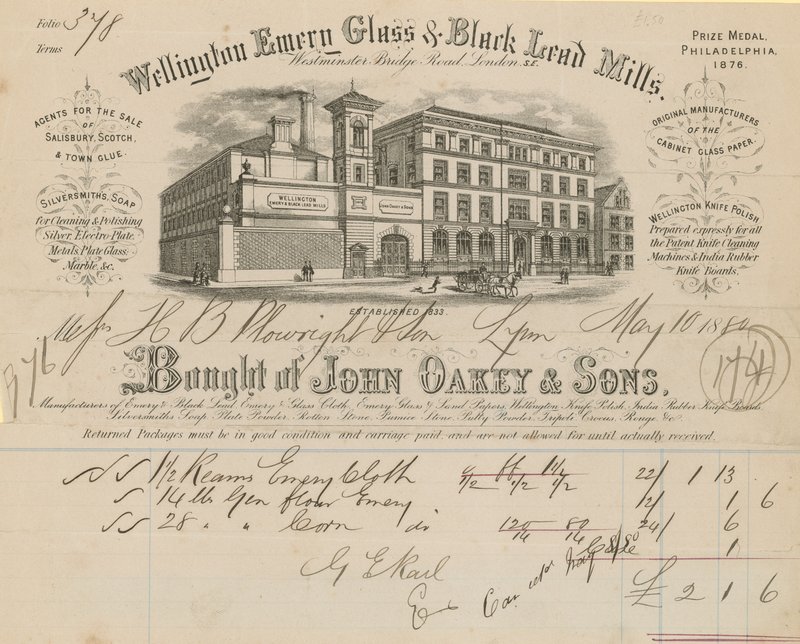 Folio 378
£1.50
Terms
Wellington Emery Glass & Black Lead Mills.
Westminster Bridge Road, London. S.E.
PRIZE MEDAL,
PHILADELPHIA,
1876.
AGENTS FOR THE SALE
OF
SALISBURY, SCOTCH,
& TOWN GLUE.
SILVERSMITHS, SOAP
for Cleaning & Polishing
Silver, Electro-Plate,
Metals, Plate Glass,
Marble, &c.
ORIGINAL MANUFACTURERS
OF THE
CABINET GLASS PAPER.
WELLINGTON KNIFE POLISH
Prepared expressly for all
the Patent Knife Cleaning
Machines & India Rubber
Knife Boards.
WELLINGTON
EMERY & BLACK LEAD MILLS
JOHN OAKEY & SONS
ESTABLISHED 1833.
Messrs H B Plowright & Son Lynn May 10 1880
376
174
Bought of JOHN OAKEY & SONS,
Manufacturers of Emery & Black Lead, Emery & Glass Cloth, Emery Glass & Sand Papers, Wellington Knife Polish, India Rubber Knife Boards
Silversmiths Soap, Plate Powder, Rotten Stone, Pumice Stone, Putty Powder, Tripoli, Crocus, Rouge &c.
Returned Packages must be in good condition and carriage paid and are not allowed for until actually received.
1 1/2 Reams Emery Cloth 1/2 1/2 22/ 1 13
14 lbs Gen flour Emery 12/ 1 6
28 " " Corn do 120/14 80/14 24/ 6
Case 1
£ 2 1 6